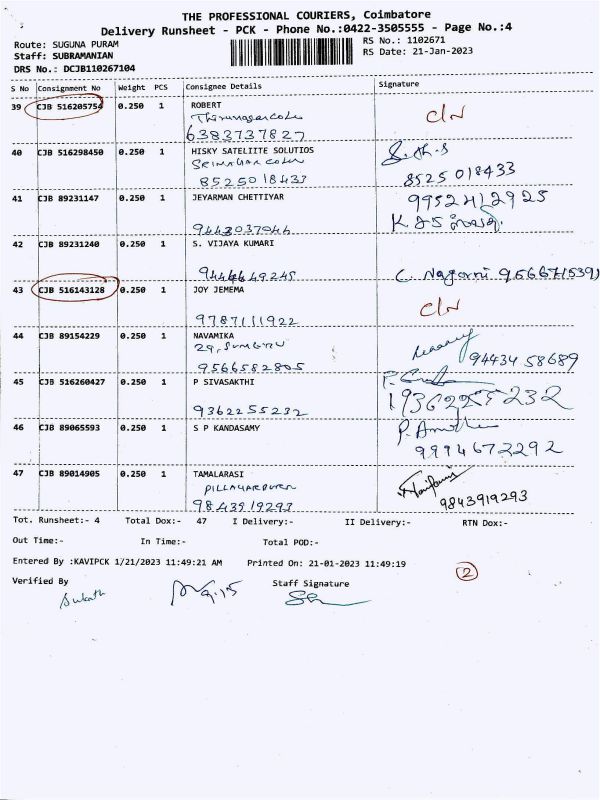 THE PROFESSIONAL COURIERS, Coimbatore
Delivery Runsheet - PCK - Phone No.:0422-3505555 - Page No.:4
Route: SUGUNA PURAM
RS No.: 1102671
Staff: SUBRAMANIAN
RS Date: 21-Jan-2023
DRS No.: DCJB110267104
S No Consignment No Weight PCS Consignee Details Signature
39 CJB 516205754 0.250 1 ROBERT
C/N
6383737827
40 CJB 516298450 0.250 1 HISKY SATELIITE SOLUTIOS
8525018433 8525018433
41 CJB 89231147 0.250 1 JEYARMAN CHETTIYAR 9952412925
9443037044
42 CJB 89231240 0.250 1 S. VIJAYA KUMARI
9444649245 C. Nagarni 9566715391
43 CJB 516143128 0.250 1 JOY JEMEMA
C/N
9787111922
44 CJB 89154229 0.250 1 NAVAMIKA
29,
9443458689
9566582805
45 CJB 516260427 0.250 1 P SIVASAKTHI
9362255232 19362255232
46 CJB 89065593 0.250 1 S P KANDASAMY
9994672292
47 CJB 89014905 0.250 1 TAMALARASI
9843919293 9843919293
Tot. Runsheet:- 4 Total Dox:- 47 I Delivery:- II Delivery:- RTN Dox:-
Out Time:- In Time:- Total POD:-
Entered By :KAVIPCK 1/21/2023 11:49:21 AM Printed On: 21-01-2023 11:49:19
2
Verified By Staff Signature